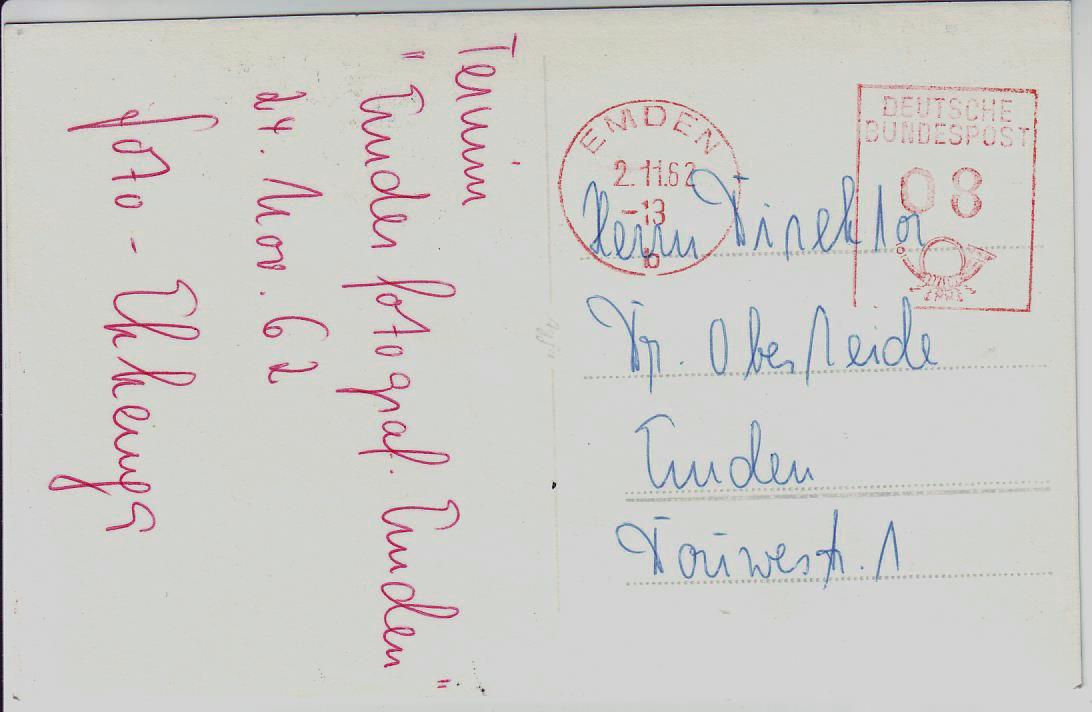 Termin
"Emder fotograf. Emden"
24. Nov. 62
foto - Ekkenga
EMDEN
2.11.62
-13
b
DEUTSCHE
BUNDESPOST
08
Herrn Direktor
Dr.
Emden
Douwestr. 1